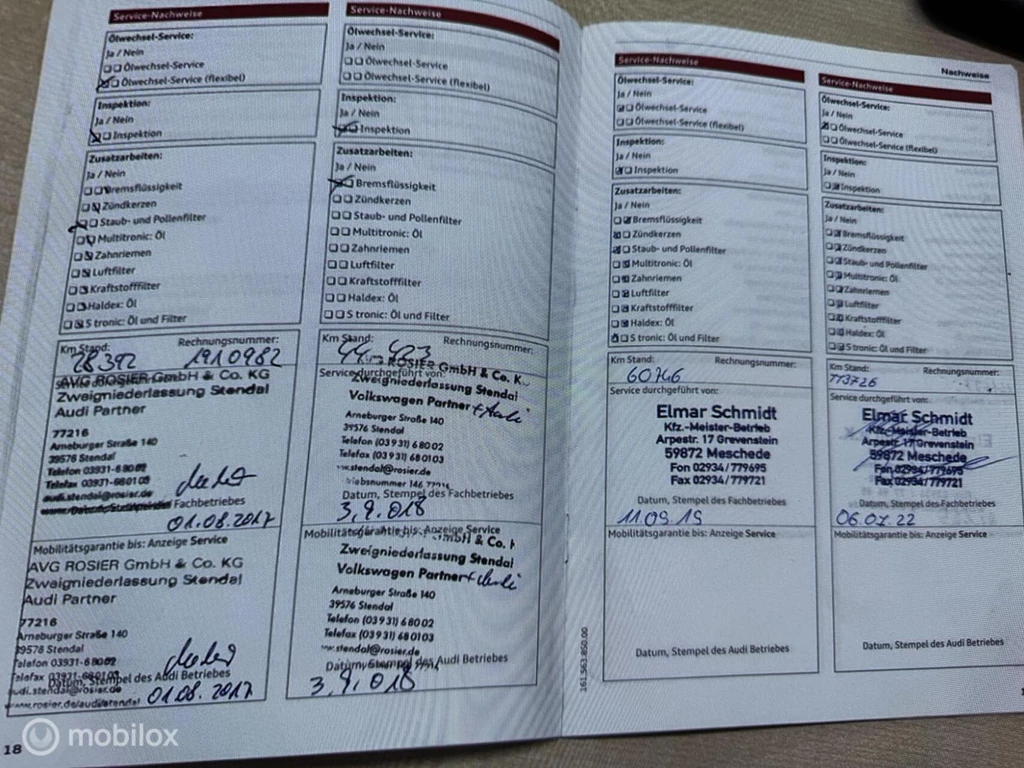 Service-Nachweise
Ölwechsel-Service:
Ja / Nein
Ölwechsel-Service
Ölwechsel-Service (flexibel)
Inspektion:
Ja / Nein
Inspektion
Zusatzarbeiten:
Ja / Nein
Bremsflüssigkeit
Zündkerzen
Staub- und Pollenfilter
Multitronic: Öl
Zahnriemen
Luftfilter
Kraftstofffilter
Haldex: Öl
S tronic: Öl und Filter
Km Stand:
Rechnungsnummer:
28392
1910982
AVG ROSIER GmbH & Co. KG
Zweigniederlassung Stendal
Audi Partner
77216
Arneburger Straße 140
39576 Stendal
Telefon 03931-6 80 02
audi.stendal@rosier.de
Fachbetriebes
01.08.2017
Mobilitätsgarantie bis: Anzeige Service
AVG ROSIER GmbH & Co. KG
Zweigniederlassung Stendal
Audi Partner
77216
Arneburger Straße 140
39576 Stendal
Telefon 03931-6 80 02
Datum, Stempel des Audi Betriebes
audi.stendal@rosier.de
01.08.2017
www.rosier.de/audistendal
18
Service-Nachweise
Ölwechsel-Service:
Ja / Nein
Ölwechsel-Service
Ölwechsel-Service (flexibel)
Inspektion:
Ja / Nein
Inspektion
Zusatzarbeiten:
Ja / Nein
Bremsflüssigkeit
Zündkerzen
Staub- und Pollenfilter
Multitronic: Öl
Zahnriemen
Luftfilter
Kraftstofffilter
Haldex: Öl
S tronic: Öl und Filter
Km Stand:
Rechnungsnummer:
ROSIER GmbH & Co. K
Service durchgeführt von:
Zweigniederlassung Stendal
Volkswagen Partner + Audi
Arneburger Straße 140
39576 Stendal
Telefon (0 39 31) 6 80 02
Telefax (0 39 31) 68 01 03
stendal@rosier.de
Datum, Stempel des Fachbetriebes
3.9.018
Mobilitätsgarantie bis: Anzeige Service
Zweigniederlassung Stendal
Volkswagen Partner + Audi
Arneburger Straße 140
39576 Stendal
Telefon (0 39 31) 6 80 02
Telefax (0 39 31) 68 01 03
stendal@rosier.de
Datum, Stempel des Audi Betriebes
3.9.018
Service-Nachweise
Ölwechsel-Service:
Ja / Nein
Ölwechsel-Service
Ölwechsel-Service (flexibel)
Inspektion:
Ja / Nein
Inspektion
Zusatzarbeiten:
Ja / Nein
Bremsflüssigkeit
Zündkerzen
Staub- und Pollenfilter
Multitronic: Öl
Zahnriemen
Luftfilter
Kraftstofffilter
Haldex: Öl
S tronic: Öl und Filter
Km Stand:
Rechnungsnummer:
60746
Service durchgeführt von:
Elmar Schmidt
Kfz.-Meister-Betrieb
Arpestr. 17 Grevenstein
59872 Meschede
Fon 02934/779695
Fax 02934/779721
Datum, Stempel des Fachbetriebes
11.09.19
Mobilitätsgarantie bis: Anzeige Service
Datum, Stempel des Audi Betriebes
161.563.850.00
Nachweise
Service-Nachweise
Ölwechsel-Service:
Ja / Nein
Ölwechsel-Service
Ölwechsel-Service (flexibel)
Inspektion:
Ja / Nein
Inspektion
Zusatzarbeiten:
Ja / Nein
Bremsflüssigkeit
Zündkerzen
Staub- und Pollenfilter
Multitronic: Öl
Zahnriemen
Luftfilter
Kraftstofffilter
Haldex: Öl
S tronic: Öl und Filter
Km Stand:
Rechnungsnummer:
113726
Service durchgeführt von:
Elmar Schmidt
Kfz.-Meister-Betrieb
Arpestr. 17 Grevenstein
59872 Meschede
Fon 02934/779695
Fax 02934/779721
Datum, Stempel des Fachbetriebes
06.07.22
Mobilitätsgarantie bis: Anzeige Service
Datum, Stempel des Audi Betriebes
mobilox